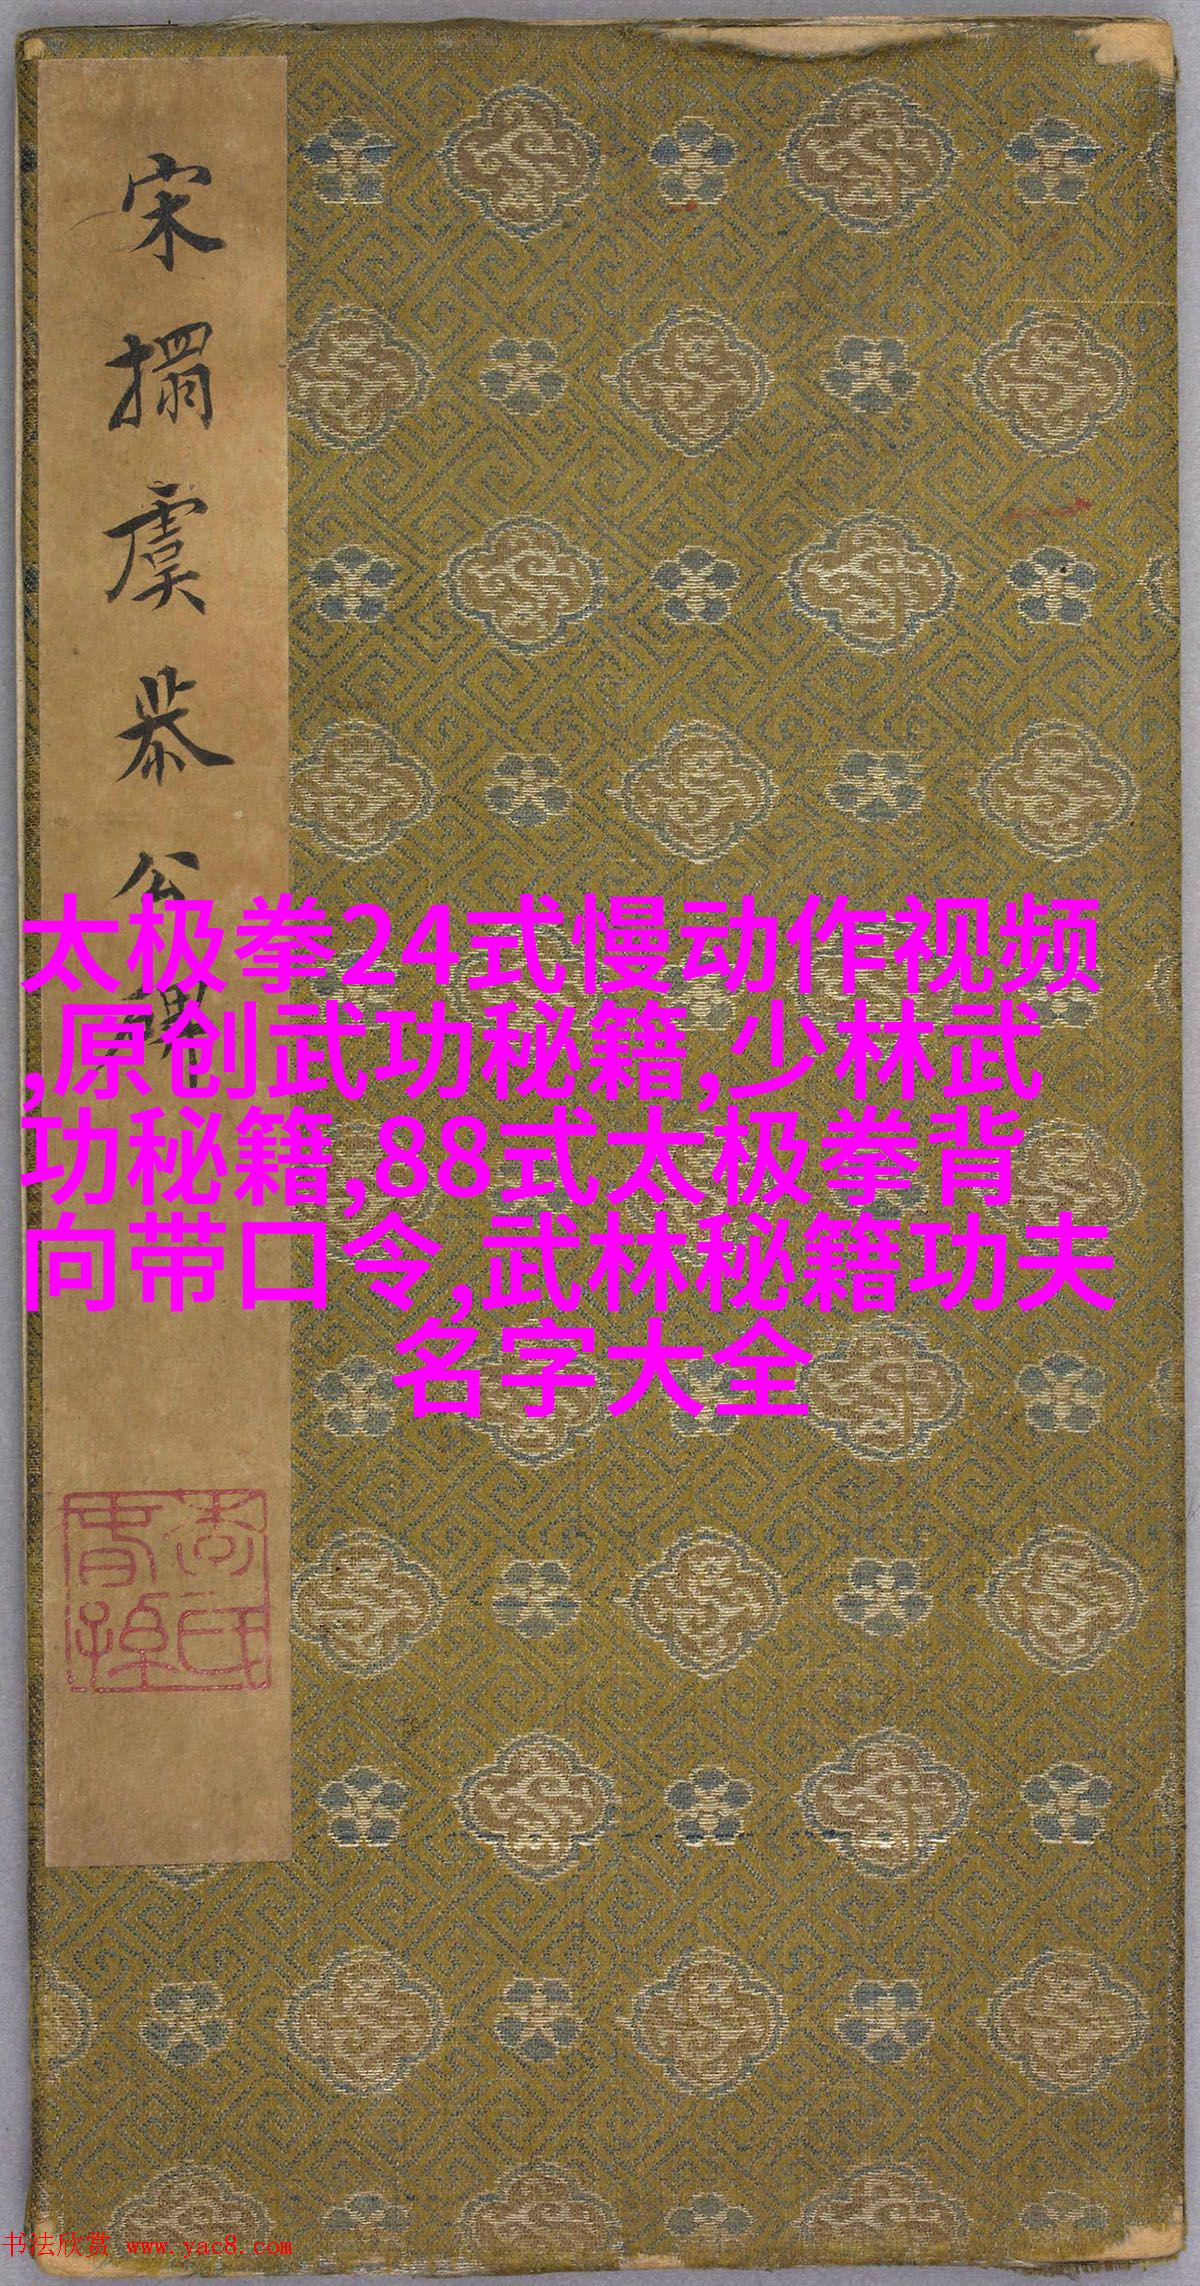 宋搨虞恭公碑
太极拳24式慢动作视频
,原创武功秘籍,少林武
功秘籍,88式太极拳背
向带口令,武林秘籍功夫
名字大全
书法欣赏 www.yac8.com